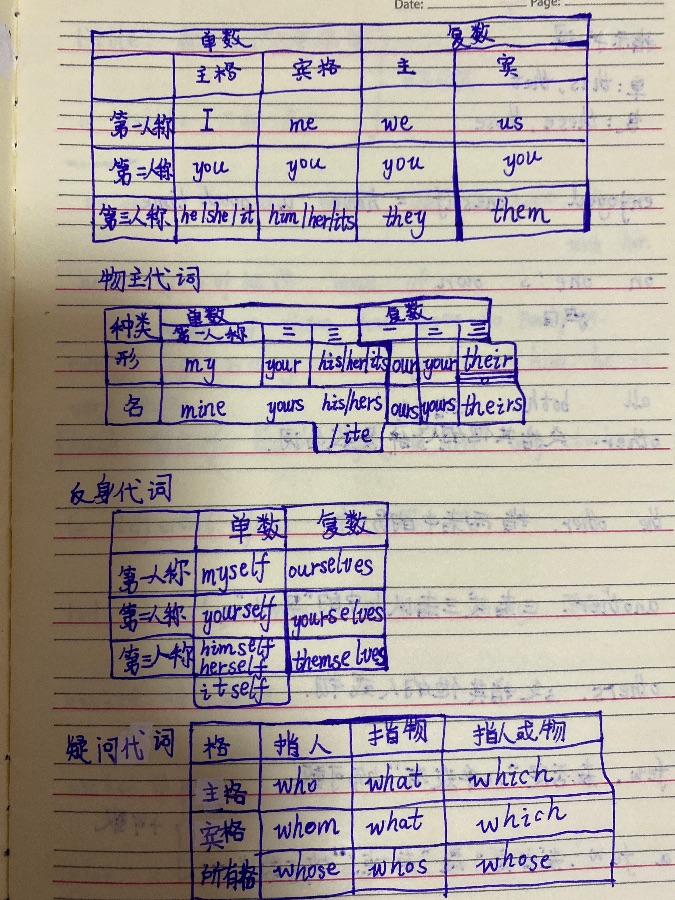 Date: Page:
单数 复数
主格 宾格 主 宾
第一人称 I me we us
第二人称 you you you you
第三人称 he/she/it him/her/its they them
物主代词
种类 单数 复数
第一人称 二 三 一 二 三
形 my your his/her/its our your their
名 mine yours his/hers ours yours theirs
/ite
反身代词
单数 复数
第一人称 myself ourselves
第二人称 yourself yourselves
第三人称 himself themselves
herself
itself
疑问代词 格 指人 指物 指人或物
主格 who what which
宾格 whom what which
所有格 whose whos whose